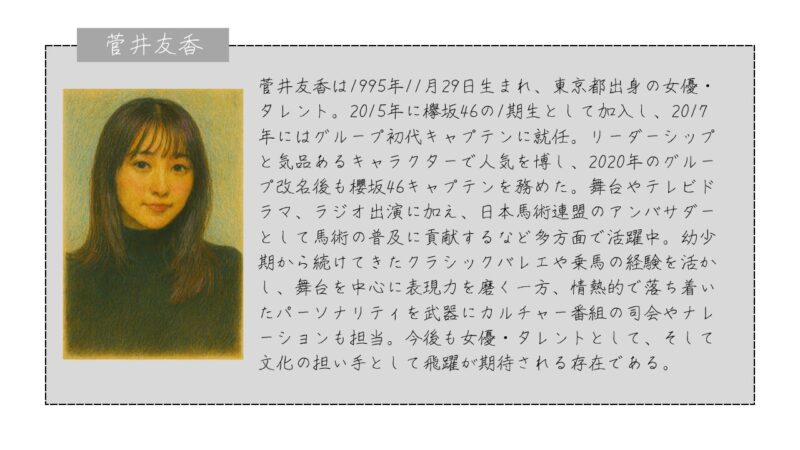 菅井友香
菅井友香は1995年11月29日生まれ、東京都出身の女優・
タレント。2015年に欅坂46の1期生として加入し、2017
年にはグループ初代キャプテンに就任。リーダーシップ
と気品あるキャラクターで人気を博し、2020年のグルー
プ改名後も櫻坂46キャプテンを務めた。舞台やテレビド
ラマ、ラジオ出演に加え、日本馬術連盟のアンバサダー
として馬術の普及に貢献するなど多方面で活躍中。幼少
期から続けてきたクラシックバレエや乗馬の経験を活か
し、舞台を中心に表現力を磨く一方、情熱的で落ち着い
たパーソナリティを武器にカルチャー番組の司会やナレ
ーションも担当。今後も女優・タレントとして、そして
文化の担い手として飛躍が期待される存在である。